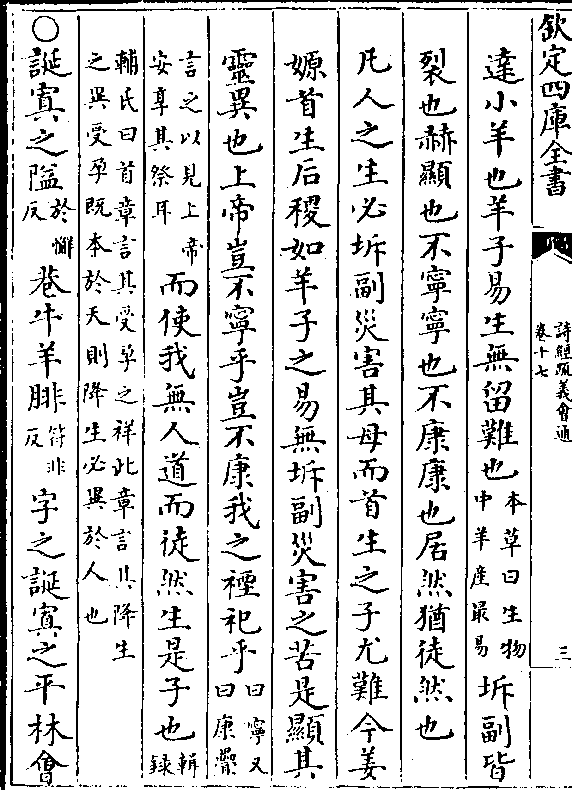 欽定四庫全書
詩經疏義會通
卷十七
三
達小羊也羊子易生無留難也本草曰生物中羊產最易坼副皆
裂也赫顯也不寧寧也不康康也居然猶徒然也
凡人之生必坼副災害其母而首生之子尤難今姜
嫄首生后稷如羊子之易無坼副災害之苦是顯其
靈異也上帝豈不寧乎豈不康我之禋祀乎曰寧又曰康疊
言之以見上帝安享其祭耳而使我無人道而徒然生是子也輯録
輔氏曰首章言其受孕之祥此章言其降生之異受孕既本於天則降生必異於人也
○誕寘之隘於懈反巷牛羊腓符非反字之誕寘之平林會